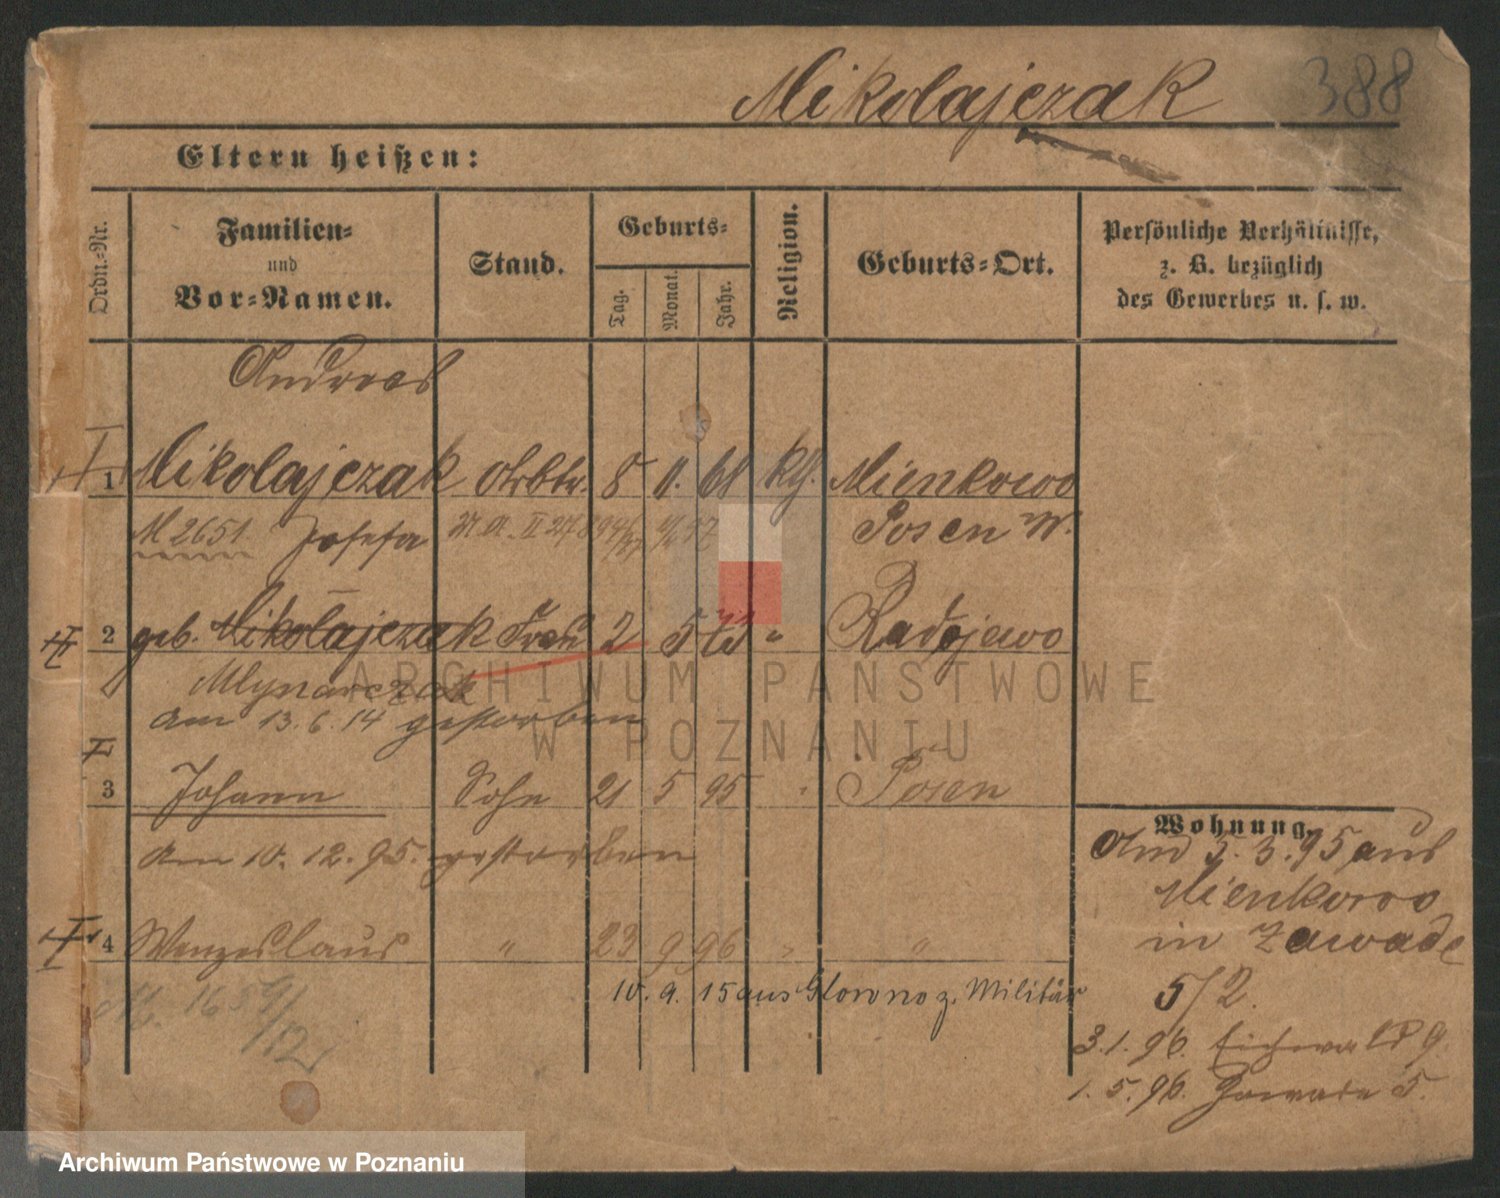 Mikolajczak 388
Eltern heißen:
Ordn.-Nr.
Familien-
und
Vor-Namen.
Stand.
Geburts-
Tag.
Monat.
Jahr.
Religion.
Geburts-Ort.
Persönliche Verhältnisse,
z. B. bezüglich
des Gewerbes u. s. w.
Andreas
1 Mikolajczak Arbtr. 8 11. 68 kth. Mienkowo
M 2651 Josefa Posen W.
2 geb. Mikolajczak Frau 2 5 " Radojewo
Mlynarczak
am 13.6.14 gestorben
3 Johann Sohn 21 5 95 " Posen
am 10. 12. 95. gestorben
4 Wenzeslaus " 23 9 96 " "
10. 9. 15 aus Glowno z. Militär
1659/12
Wohnung.
Am 5. 3. 95 aus
Mienkowo
in Zawade
5/2.
3. 1. 96. Eichwald 9
1. 5. 96. Zawade 5.
ARCHIWUM PAŃSTWOWE
W POZNANIU
Archiwum Państwowe w Poznaniu